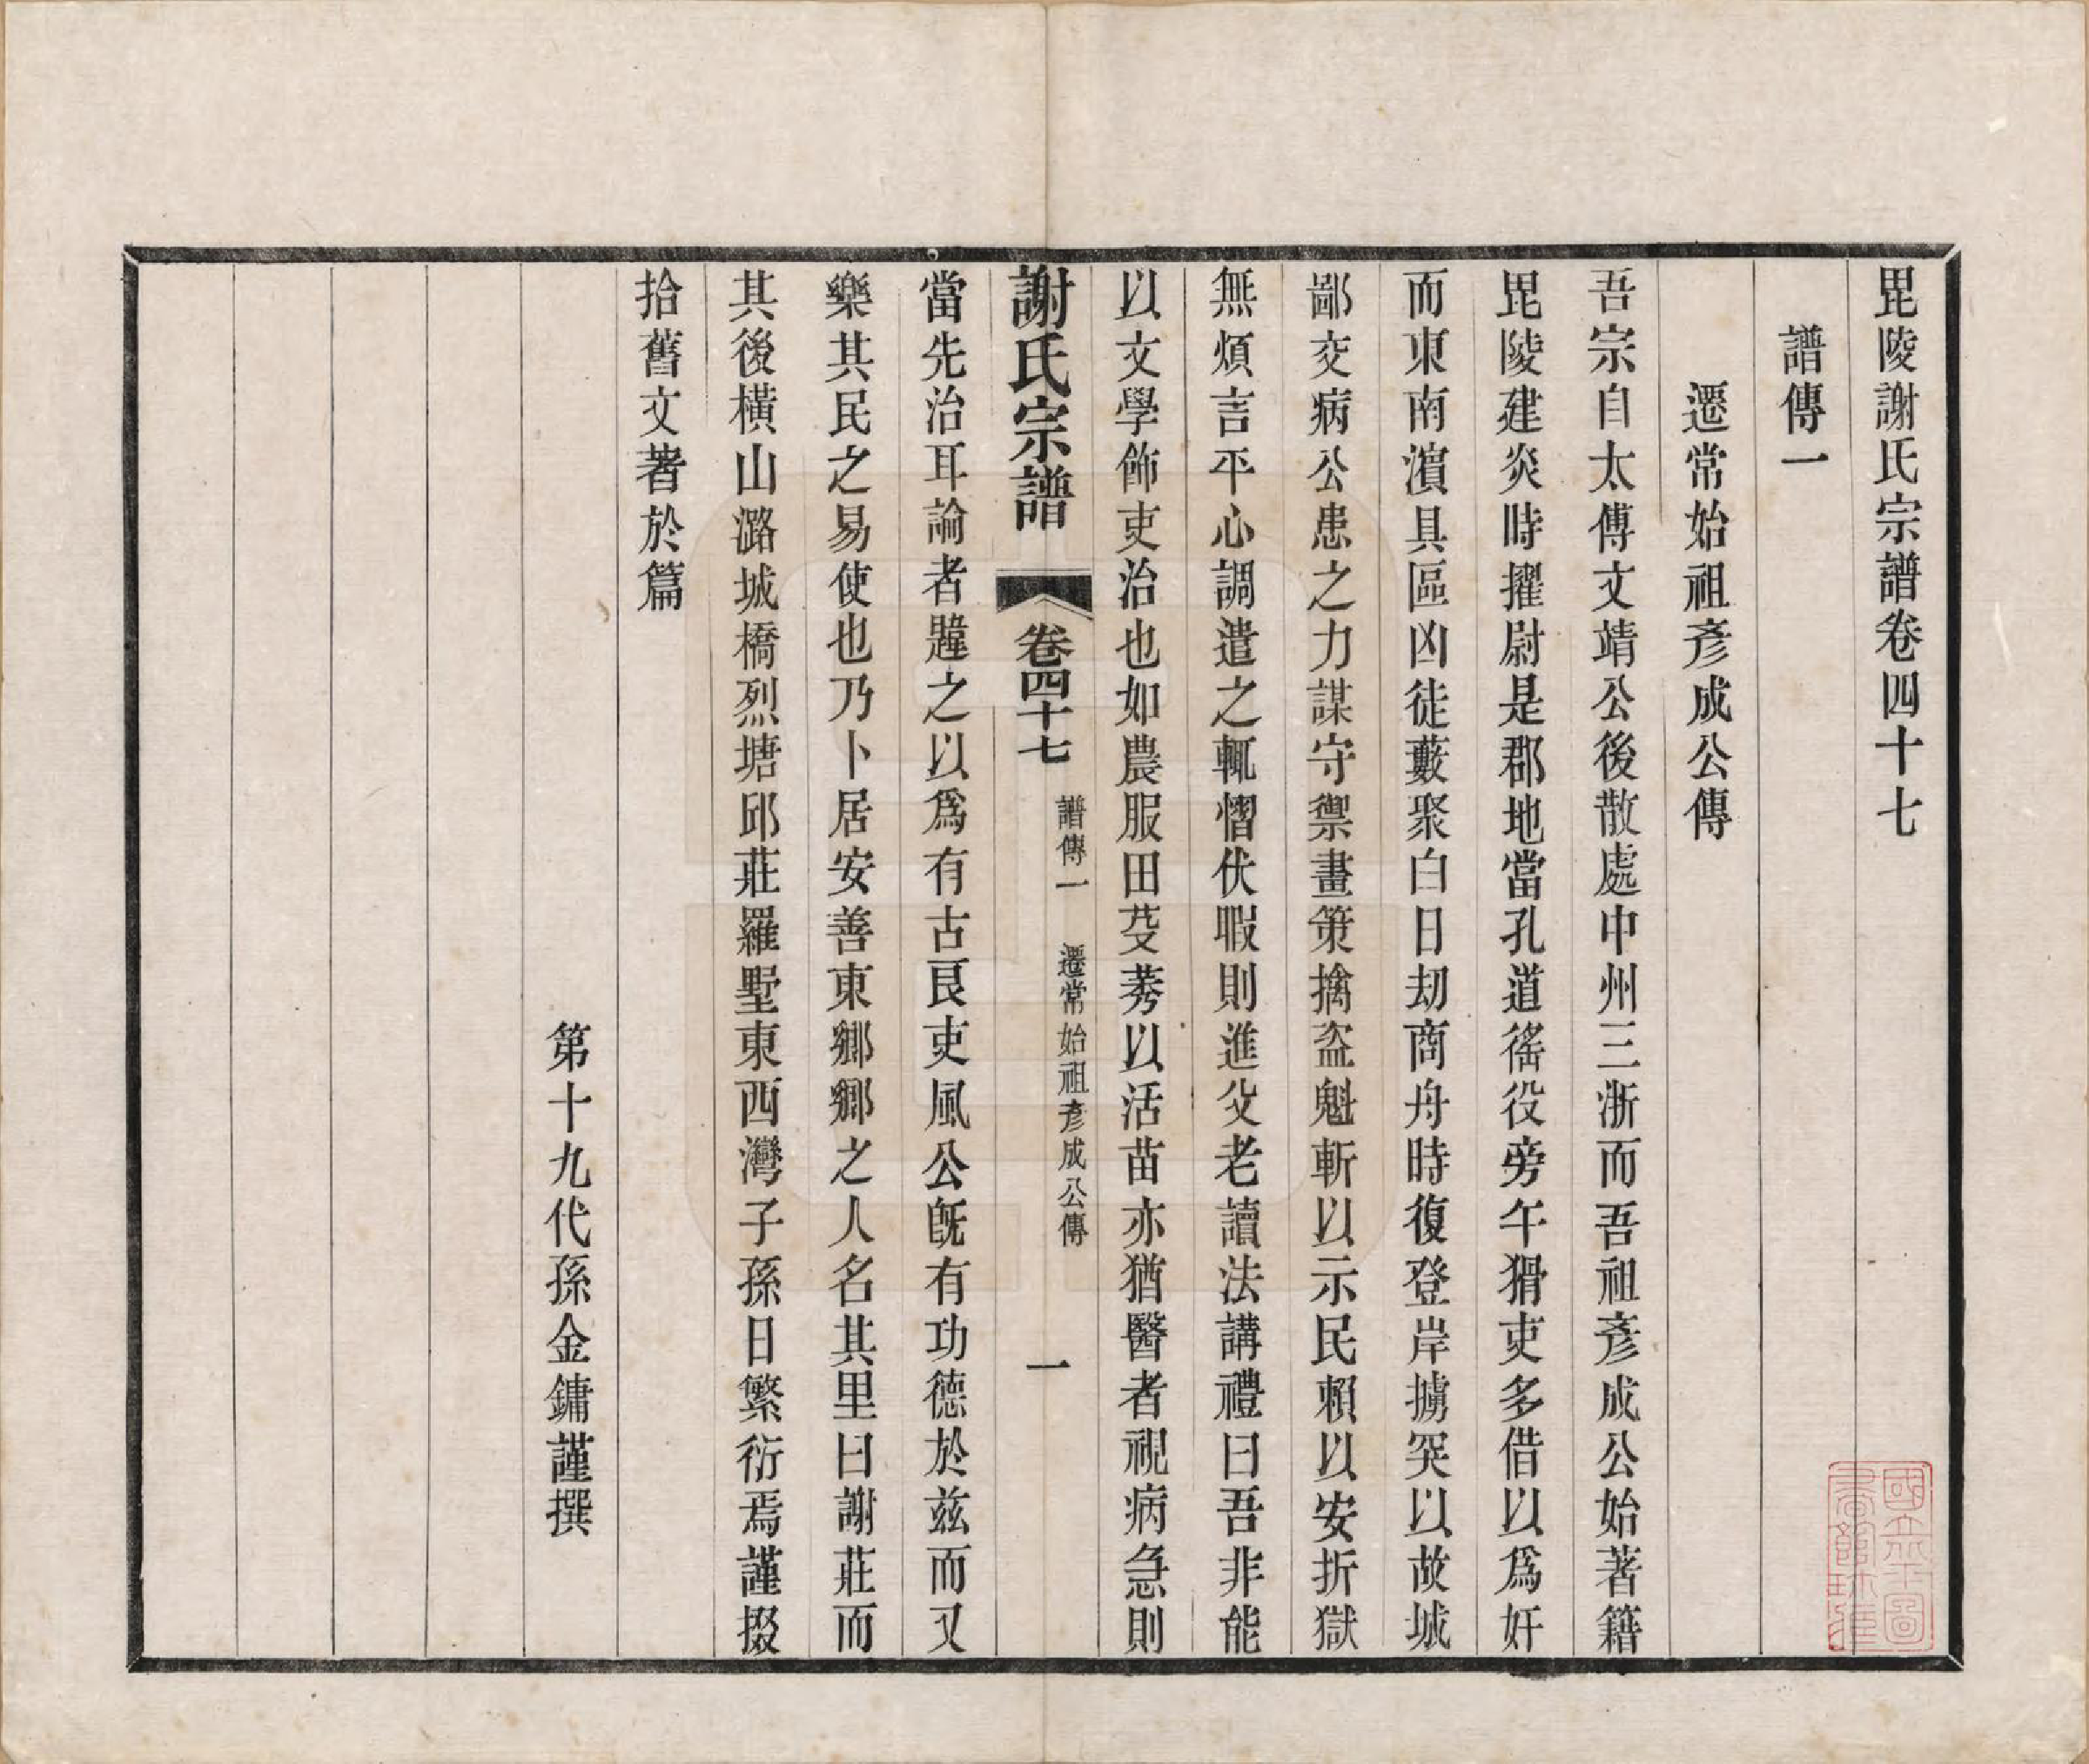 毘陵謝氏宗譜卷四十七
譜傳一
遷常始祖彥成公傳
吾宗自太傅文靖公後散處中州三浙而吾祖彥成公始著籍
毘陵建炎時擢尉是郡地當孔道徭役旁午猾吏多借以爲奸
而東南濵具區凶徒藪聚白日刧商舟時復登岸擄突以故城
鄙交病公患之力謀守禦畫策擒盜魁斬以示民賴以安折獄
無煩言平心調遣之輒慴伏暇則進父老讀法講禮曰吾非能
以文學飾吏治也如農服田芟莠以活苗亦猶醫者視病急則
謝氏宗譜
卷四十七
譜傳一 遷常始祖彥成公傳
一
當先治耳論者韙之以爲有古良吏風公旣有功德於兹而又
樂其民之易使也乃卜居安善東鄉鄉之人名其里曰謝莊而
其後橫山潞城橋烈塘邱莊羅墅東西灣子孫日繁衍焉謹掇
拾舊文著於篇
第十九代孫金鏞謹撰
國立北平圖
書館珍藏